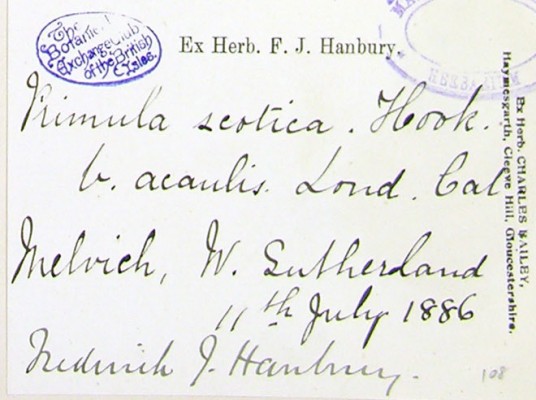 The
Botanical
Exchange Club
of the British
Isles.
Ex Herb. F. J. Hanbury.
Primula scotica. Hook.
b. acaulis. Lond. Cat
Melvich, W. Sutherland
11th July 1886
Frederick J. Hanbury.
108
Ex Herb. CHARLES BAILEY,
Haymesgarth, Cleeve Hill, Gloucestershire.
HERBARIUM